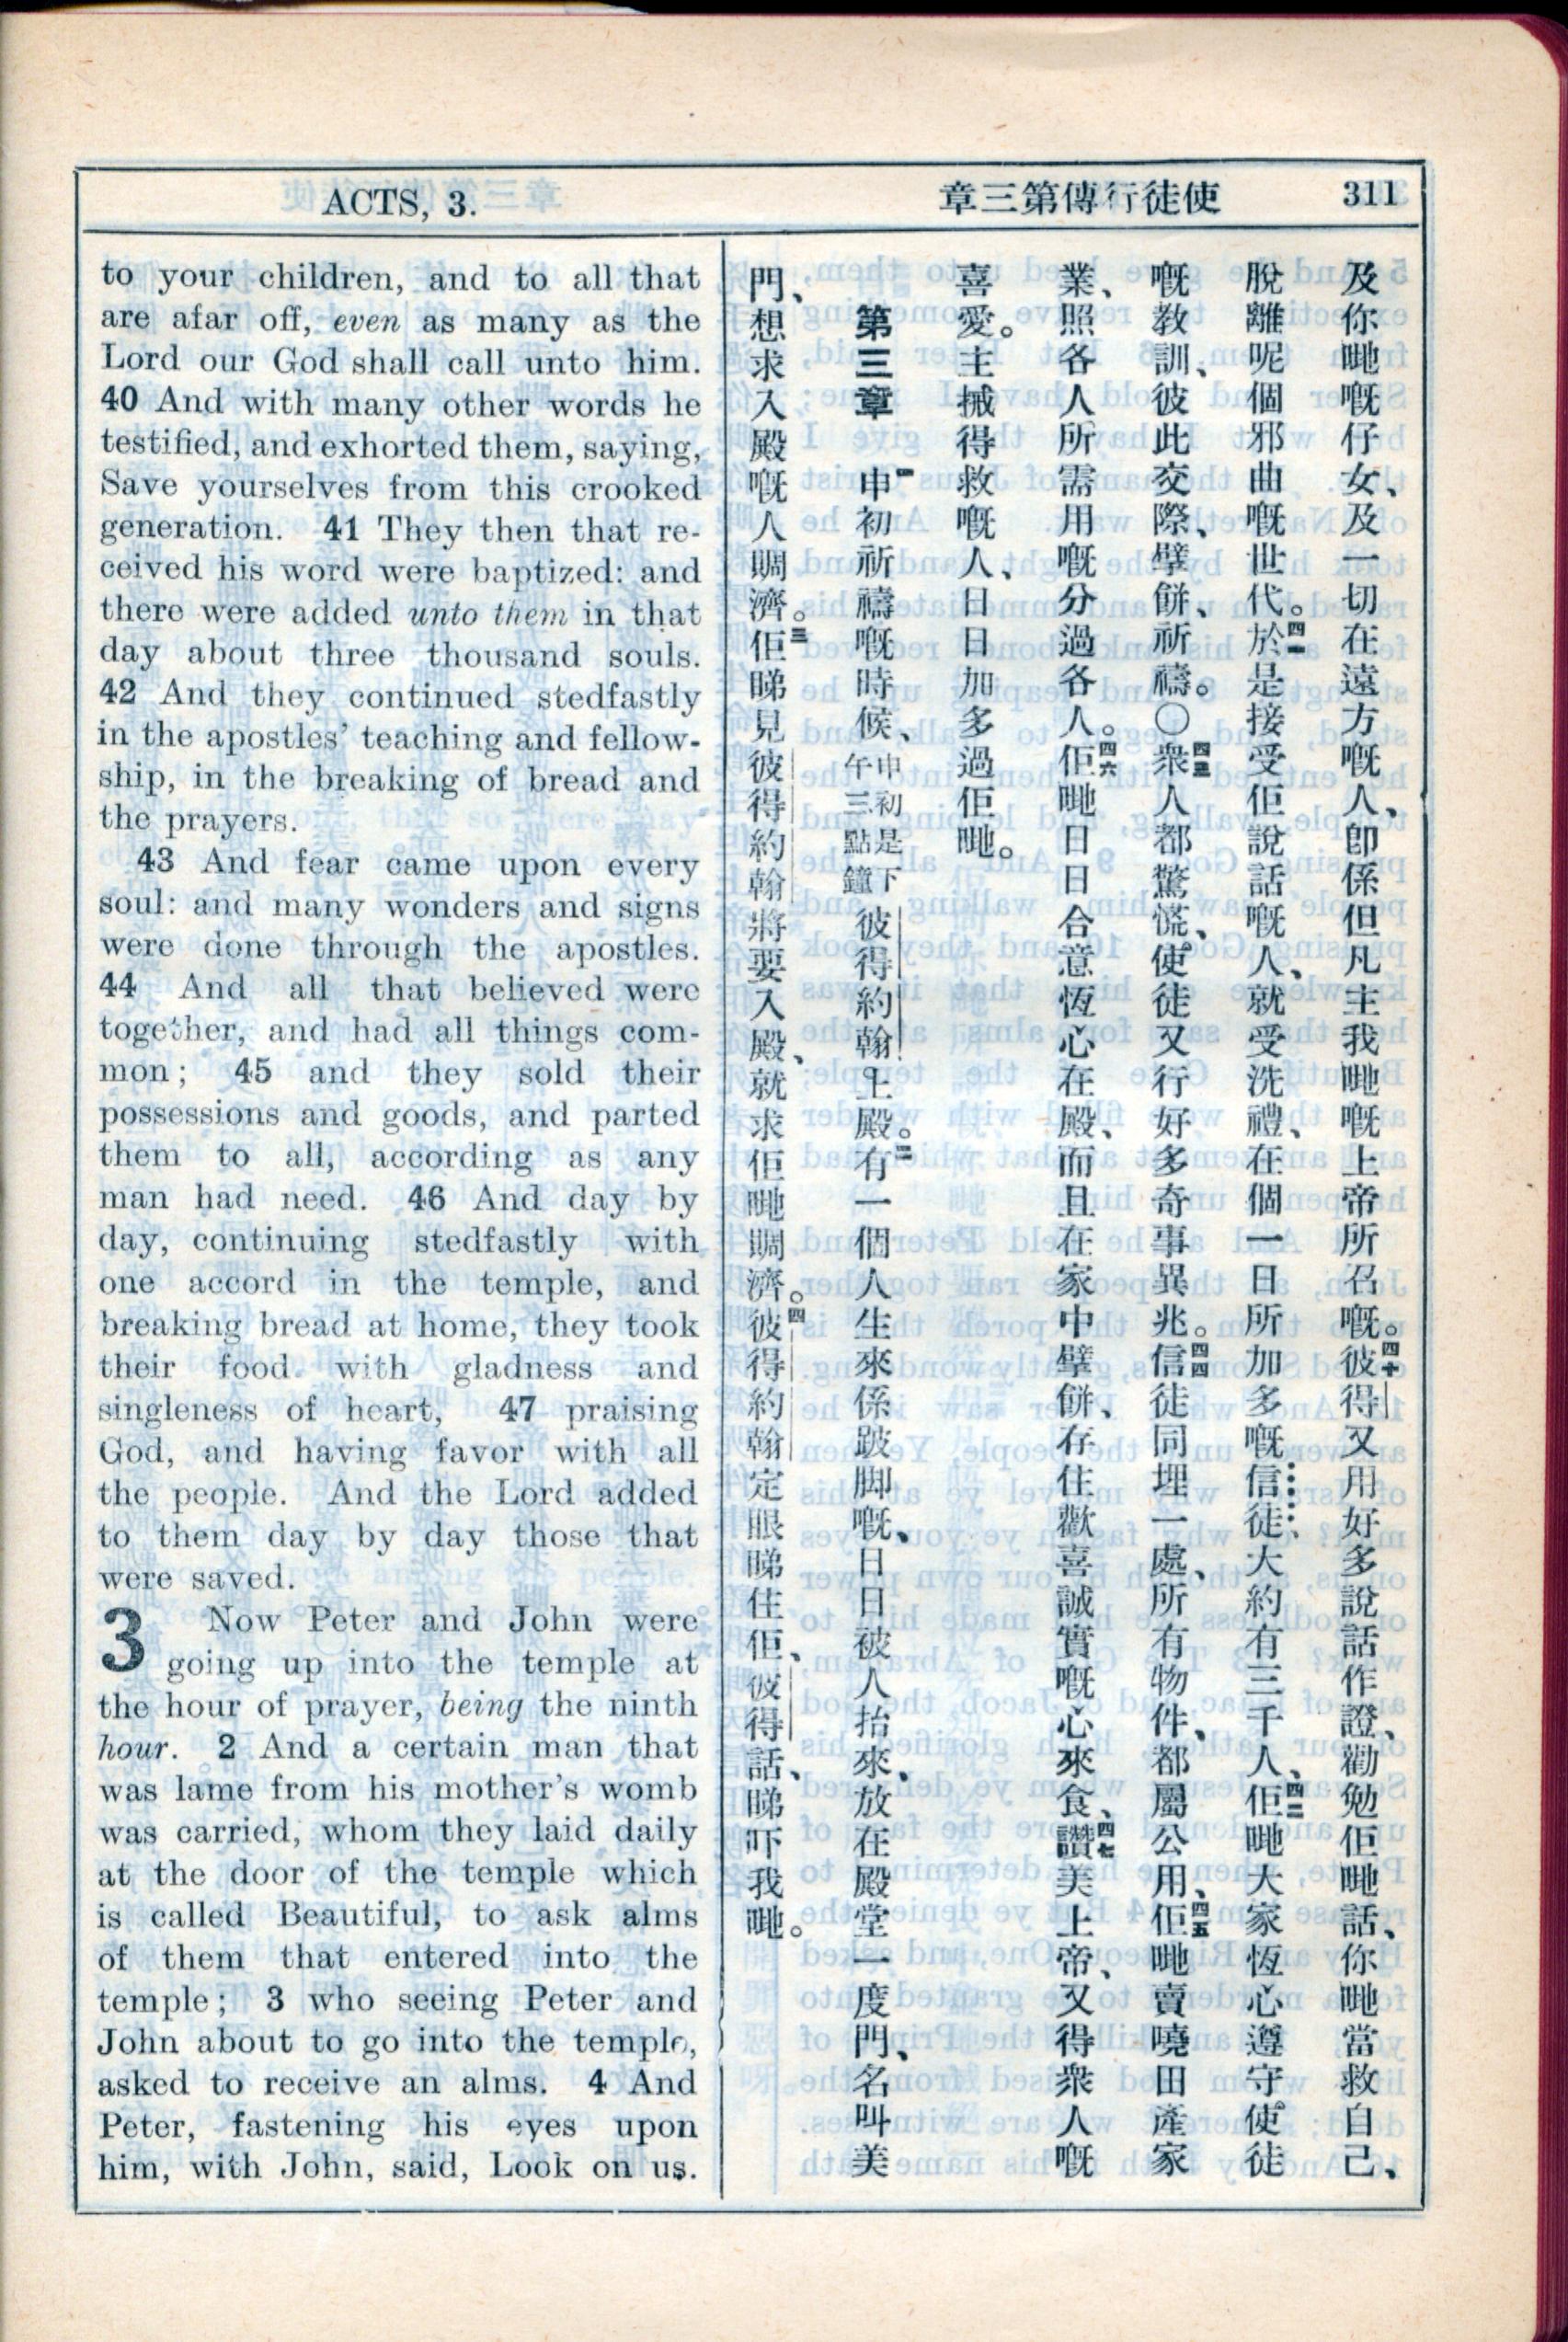 ACTS, 3.
章三第傳行徒使
311
to your children, and to all that
are afar off, even as many as the
Lord our God shall call unto him.
40 And with many other words he
testified, and exhorted them, saying,
Save yourselves from this crooked
generation. 41 They then that re-
ceived his word were baptized: and
there were added unto them in that
day about three thousand souls.
42 And they continued stedfastly
in the apostles' teaching and fellow-
ship, in the breaking of bread and
the prayers.
43 And fear came upon every
soul: and many wonders and signs
were done through the apostles.
44 And all that believed were
together, and had all things com-
mon; 45 and they sold their
possessions and goods, and parted
them to all, according as any
man had need. 46 And day by
day, continuing stedfastly with
one accord in the temple, and
breaking bread at home, they took
their food with gladness and
singleness of heart, 47 praising
God, and having favor with all
the people. And the Lord added
to them day by day those that
were saved.
3 Now Peter and John were
going up into the temple at
the hour of prayer, being the ninth
hour. 2 And a certain man that
was lame from his mother's womb
was carried, whom they laid daily
at the door of the temple which
is called Beautiful, to ask alms
of them that entered into the
temple; 3 who seeing Peter and
John about to go into the temple,
asked to receive an alms. 4 And
Peter, fastening his eyes upon
him, with John, said, Look on us.
及你哋嘅仔女、及一切在遠方嘅人、卽係但凡主我哋嘅上帝所召嘅。四十彼得又用好多說話作證、勸勉佢哋話、你哋當救自己、
脫離呢個邪曲嘅世代。四一於是接受佢說話嘅人、就受洗禮、在個一日所加多嘅信徒、大約有三千人、四二佢哋大家恆心遵守使徒
嘅教訓、彼此交際、擘餅、祈禱。〇四三衆人都驚慌、使徒又行好多奇事異兆。四四信徒同埋一處、所有物件、都屬公用、四五佢哋賣嘵田產家
業、照各人所需用嘅分過各人。四六佢哋日日合意恆心在殿、而且在家中擘餅、存住歡喜誠實嘅心來食、四七讚美上帝、又得衆人嘅
喜愛。主搣得救嘅人、日日加多過佢哋。
第三章 一申初祈禱嘅時候、申初是下午三點鐘彼得約翰上殿。二有一個人生來係跛脚嘅、日日被人抬來、放在殿堂一度門、名叫美
門、想求入殿嘅人賙濟。三佢睇見彼得約翰將要入殿、就求佢哋賙濟。四彼得約翰定眼睇住佢、彼得話、睇吓我哋。